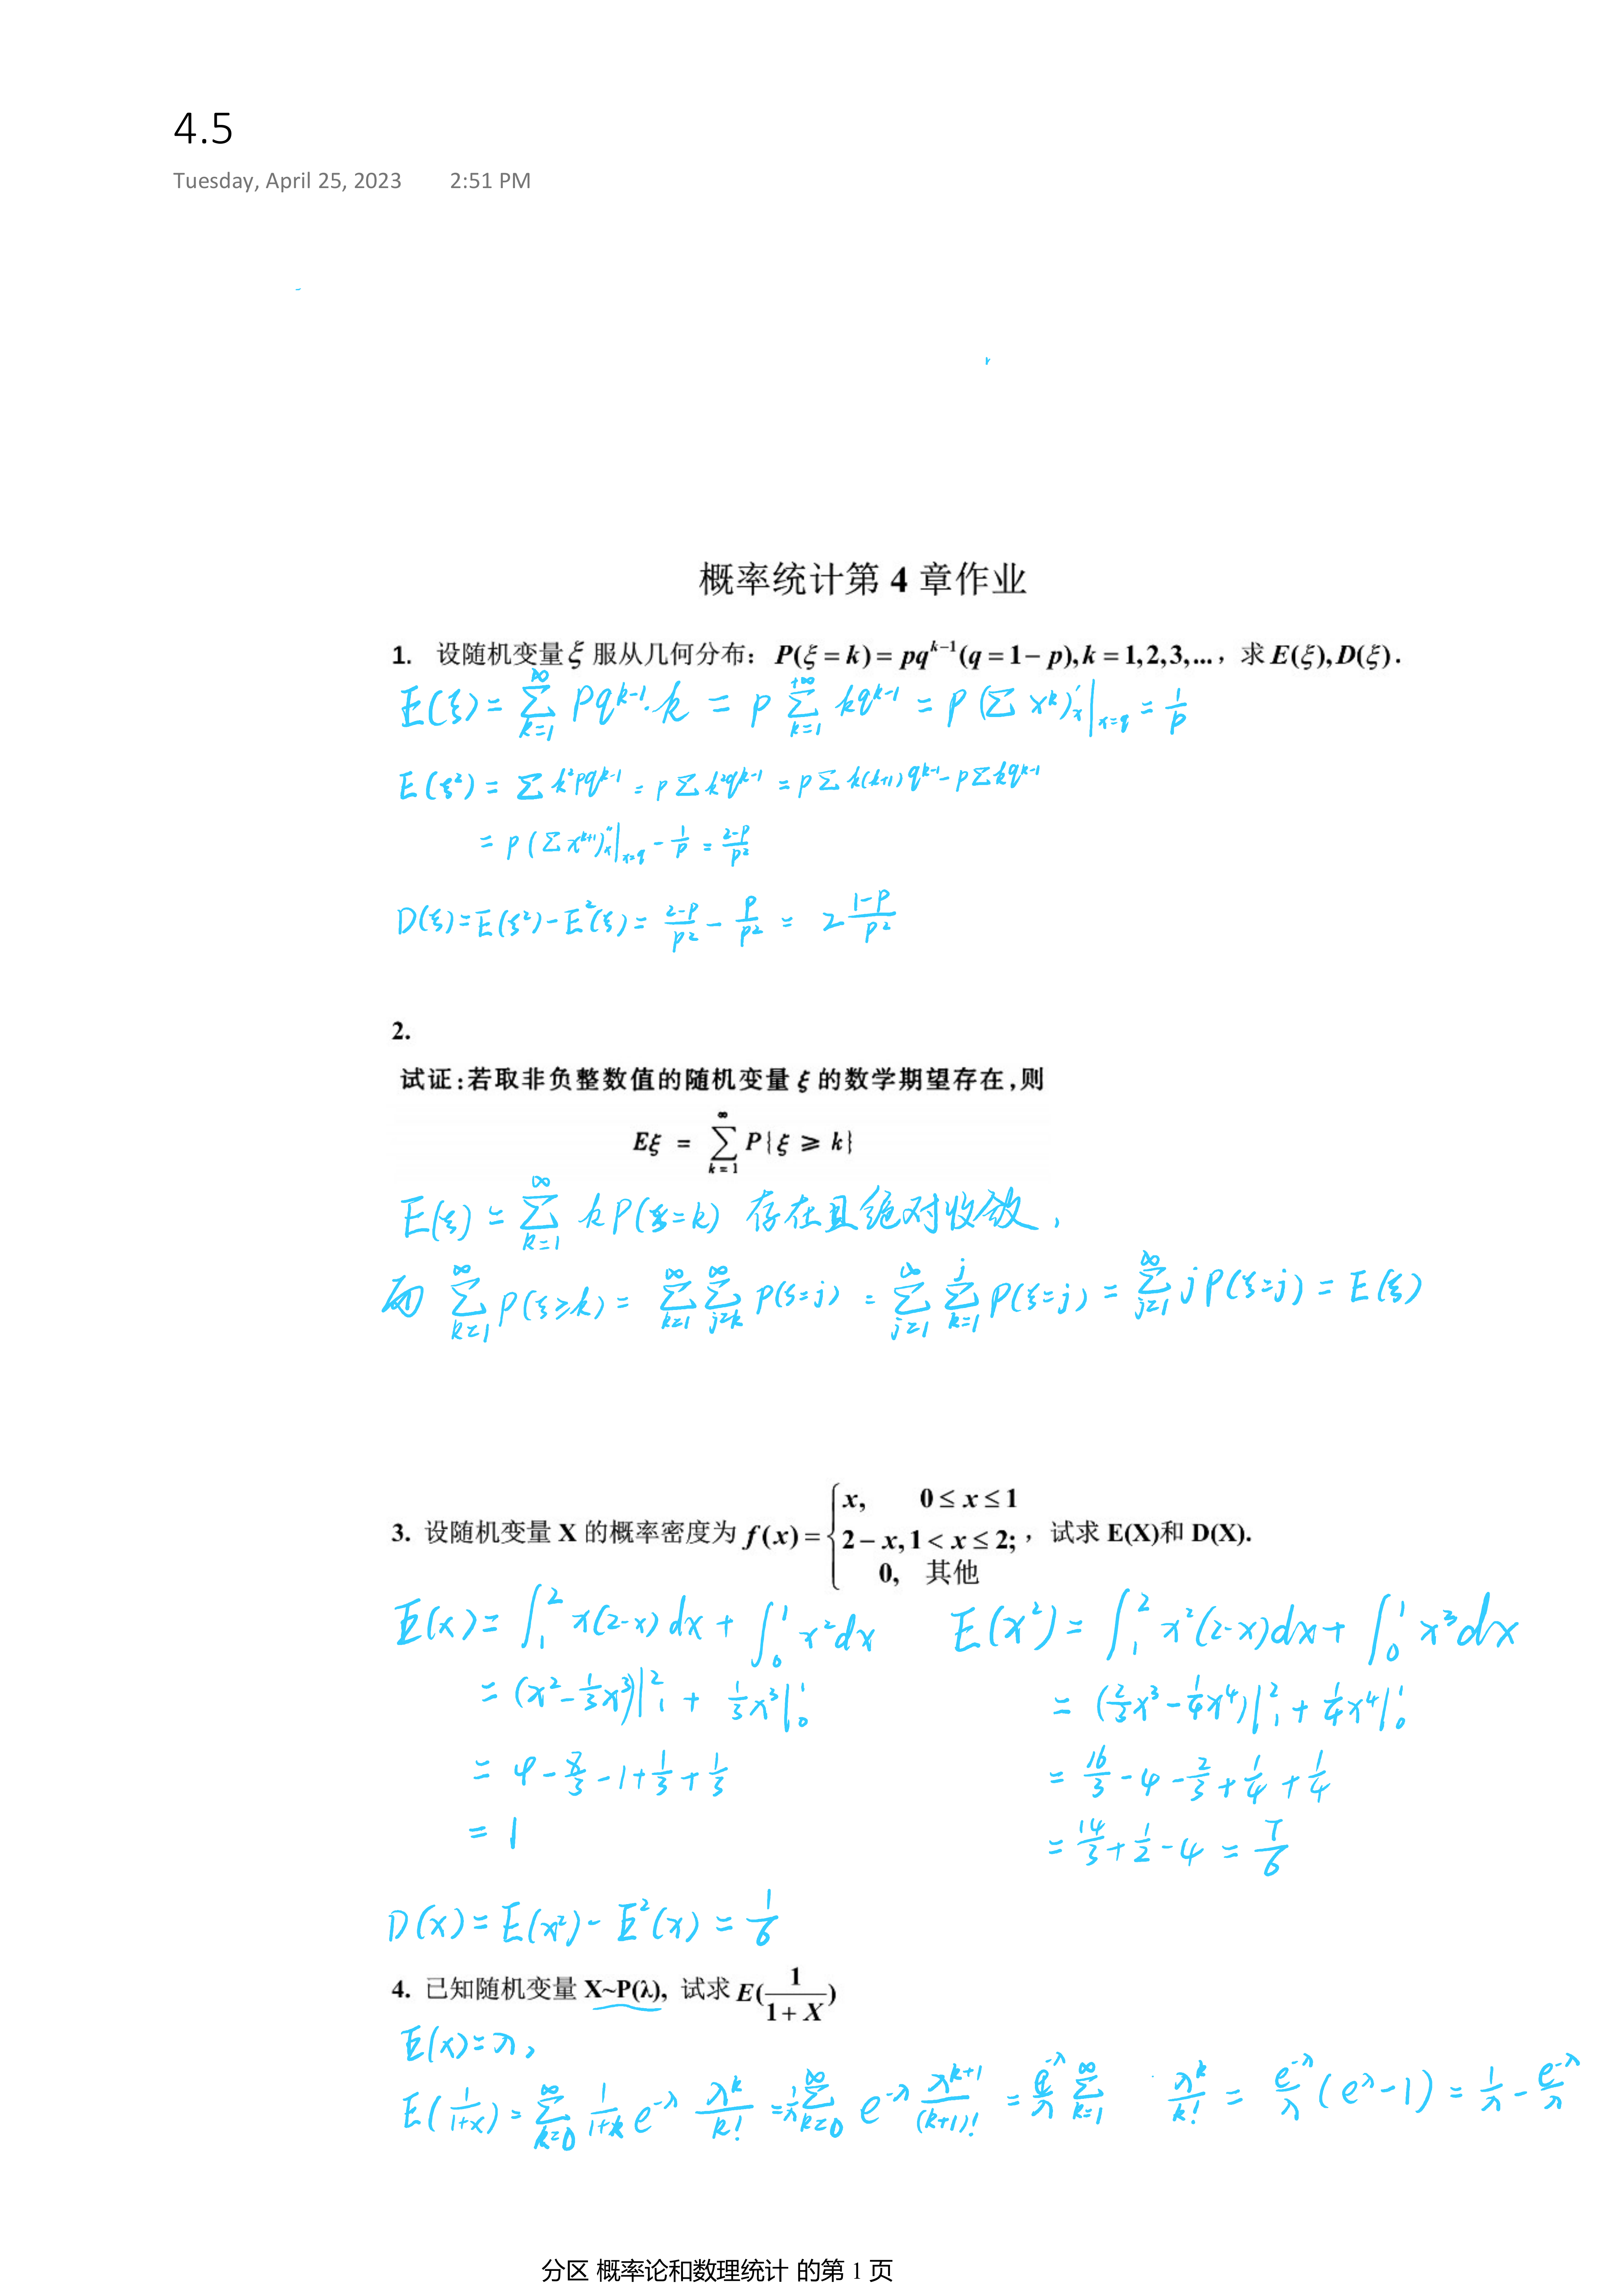 4.5
Tuesday, April 25, 2023 2:51 PM
概率统计第 4 章作业
1. 设随机变量 ξ 服从几何分布：P(ξ = k) = pq^{k−1}(q = 1 − p), k = 1,2,3,...，求 E(ξ), D(ξ).
E(ξ) = ∑_{k=1}^{∞} pq^{k-1}·k = p ∑_{k=1}^{+∞} kq^{k-1} = p (∑ x^k)'_x |_{x=q} = 1/p
E(ξ²) = ∑ k²pq^{k-1} = p ∑ k²q^{k-1} = p ∑ k(k+1) q^{k-1} - p ∑ kq^{k-1}
= p (∑ x^{k+1})''_x |_{x=q} - 1/p = (2-p)/p²
D(ξ) = E(ξ²) - E²(ξ) = (2-p)/p² - p/p² = 2 (1-p)/p²
2.
试证:若取非负整数值的随机变量 ξ 的数学期望存在,则
Eξ = ∑_{k=1}^{∞} P{ξ ≥ k}
E(ξ) = ∑_{k=1}^{∞} kP(ξ=k) 存在且绝对收敛，
而 ∑_{k=1}^{∞} P(ξ≥k) = ∑_{k=1}^{∞} ∑_{j=k}^{∞} P(ξ=j) = ∑_{j=1}^{∞} ∑_{k=1}^{j} P(ξ=j) = ∑_{j=1}^{∞} jP(ξ=j) = E(ξ)
3. 设随机变量 X 的概率密度为 f(x) = { x, 0 ≤ x ≤ 1
2 − x, 1 < x ≤ 2; ，试求 E(X)和 D(X).
0, 其他
E(x) = ∫_1^2 x(2-x) dx + ∫_0^1 x²dx
= (x² - 1/3 x³)|_1^2 + 1/3 x³|_0^1
= 4 - 8/3 - 1 + 1/3 + 1/3
= 1
E(x²) = ∫_1^2 x²(2-x)dx + ∫_0^1 x³dx
= (2/3 x³ - 1/4 x⁴)|_1^2 + 1/4 x⁴|_0^1
= 16/3 - 4 - 2/3 + 1/4 + 1/4
= 14/3 + 1/2 - 4 = 7/6
D(x) = E(x²) - E²(x) = 1/6
4. 已知随机变量 X~P(λ), 试求 E(1/(1+X))
E(x) = λ,
E(1/(1+x)) = ∑_{k=0}^{∞} 1/(1+k) e^{-λ} λ^k/k! = 1/λ ∑_{k=0}^{∞} e^{-λ} λ^{k+1}/(k+1)! = e^{-λ}/λ ∑_{k=1}^{∞} λ^k/k! = e^{-λ}/λ (e^λ - 1) = 1/λ - e^{-λ}/λ
分区 概率论和数理统计 的第 1 页